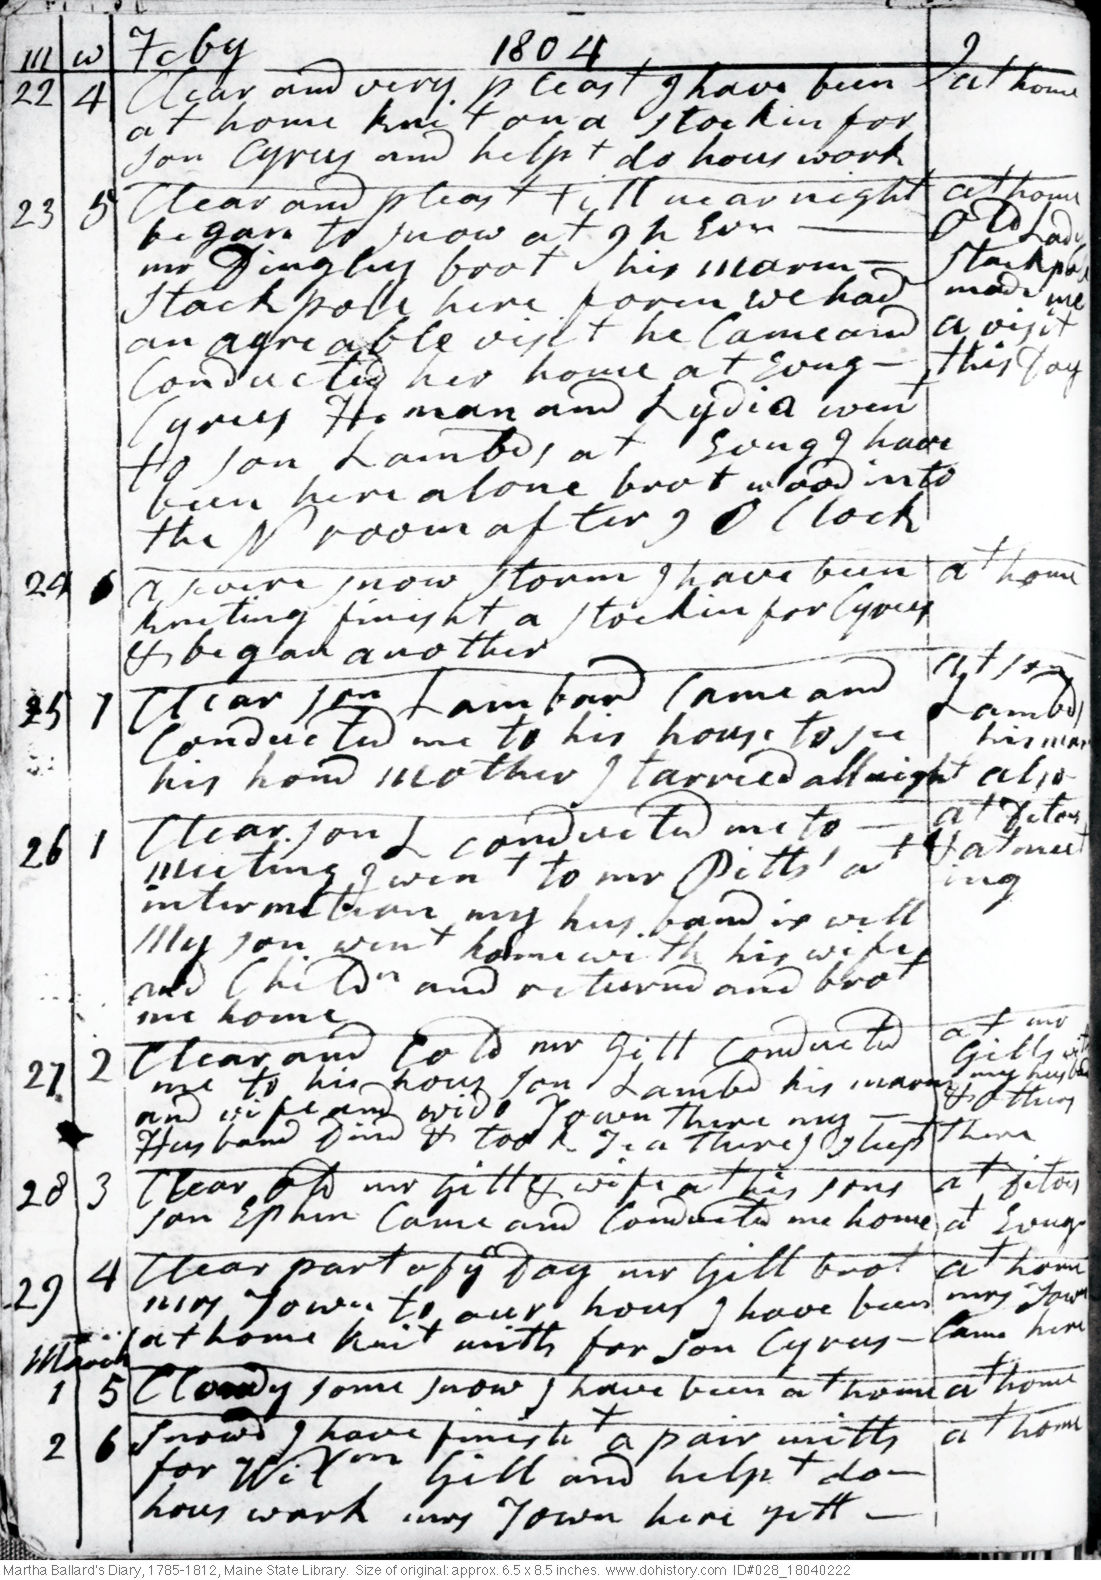 m w Feby 1804
22 4 Clear and very pleast I have been at home
at home knit on a stockin for
son Cyrus and helpt do hous work
23 5 Clear and pleast till near night at home
began to snow at 9 h Evn — Old Lady
mr Dingley brot his marm — Stackpole
Stackpole here foren we had made me
an agreable visit he Came and a visit
Conducted her home at Evng — this Day
Cyrus Heman and Lydia went
to son Lambds at Evng I have
been here alone brot wood into
the N room after 9 O Clock
24 6 A severe snow storm I have been at home
kniting finisht a stockin for Cyrus
& began another
25 7 Clear son Lambard Came and at son
Conducted me to his house to see Lambds
his hond mother I tarried all night his mar also
26 1 Clear. son L conducted me to — at Ditos
meeting I went to mr Pitts' at & at meet
intermition my husband is well ing
My son went home with his wife
and Childn and returnd and brot
me home
27 2 Clear and Cold mr Gill Conducted at mr
me to his hous son Lambd his marm Gills with my husband
and wife and wido Town there my — & others
Husband Dind & took Tea there I sleep there
28 3 Clear old mr Gill & wife at his sons at Ditos
son Ephm Came and Conducted me home at Evng
29 4 Clear part of ye Day mr Gill brot at home
mrs Town to our hous I have been mrs Town
at home knit mitts for son Cyrus — Came here
March
1 5 Cloudy some snow I have been at home at home
2 6 Snowd I have finisht a pair mitts at home
for Wilm Gill and helpt do —
hous work mrs Town here yett —
Martha Ballard's Diary, 1785-1812, Maine State Library. Size of original: approx. 6.5 x 8.5 inches. www.dohistory.com ID#028_18040222